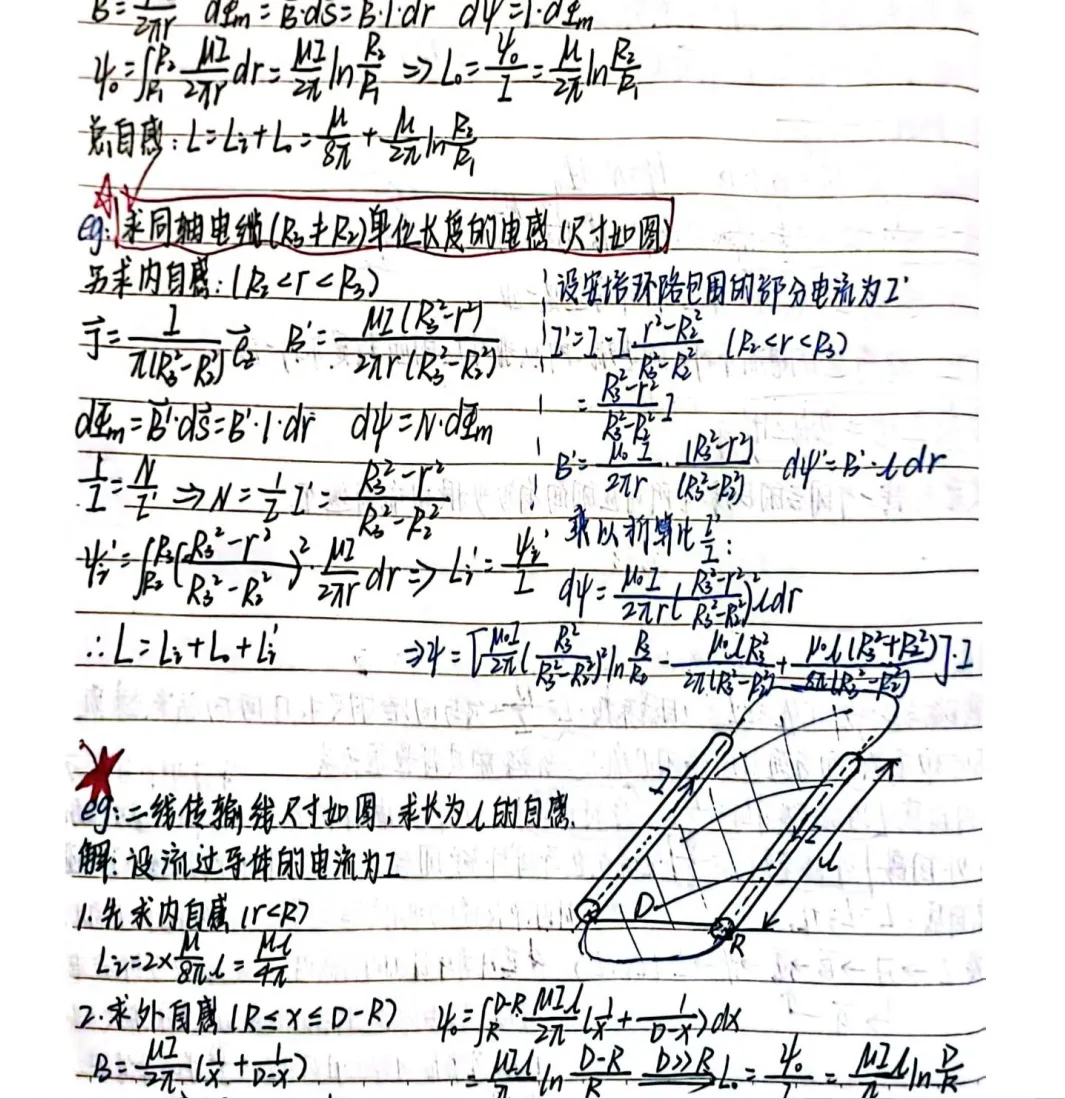 B = I/2πr dΦm = B⃗·dS⃗ = B·1·dr dψ = 1·dΦm
ψ₀ = ∫_{R₁}^{R₂} μI/2πr dr = μI/2π ln R₂/R₁ ⇒ L₀ = ψ₀/I = μ/2π ln R₂/R₁
总自感: L = Lᵢ + L₀ = μ/8π + μ/2π ln R₂/R₁
eg: 求同轴电缆(R₃≠R₂)单位长度的电感(尺寸如图)
另求内自感: (R₂<r<R₃)
J⃗ = I/π(R₃²-R₂²) e⃗z B' = μI(R₃²-r²)/2πr(R₃²-R₂²)
dΦm = B⃗'·dS⃗ = B'·1·dr dψ = N·dΦm
1/I = N/I' ⇒ N = 1/I I' = R₃²-r²/R₃²-R₂²
ψᵢ' = ∫_{R₂}^{R₃} (R₃²-r²/R₃²-R₂²)²·μI/2πr dr ⇒ Lᵢ' = ψᵢ'/I
∴ L = Lᵢ + L₀ + Lᵢ'
设安培环路包围的部分电流为I'
I' = I - I r²-R₂²/R₃²-R₂² (R₂<r<R₃)
= R₃²-r²/R₃²-R₂² I
B' = μ₀I/2πr · (R₃²-r²)/(R₃²-R₂²) dψ' = B'·l dr
乘以折算比 I'/I:
dψ = μ₀I/2πr (R₃²-r²/R₃²-R₂²)² l dr
⇒ ψ = [μ₀I/2π (R₃²/R₃²-R₂²)² ln R₃/R₂ - μ₀lR₃²/2π(R₃²-R₂²) + μ₀l(R₃²+R₂²)/8π(R₃²-R₂²)]·I
eg: 二线传输线尺寸如图,求长为l的自感.
解: 设流过导体的电流为I
1. 先求内自感(r<R)
Lᵢ = 2×μ/8π l = μl/4π
I
I
l
D
R
2. 求外自感(R≤x≤D-R) ψ₀ = ∫_R^{D-R} μIl/2π (1/x + 1/D-x) dx
B = μI/2π (1/x + 1/D-x) = μIl/π ln D-R/R D≫R L₀ = ψ₀/I = μIl/π ln D/R